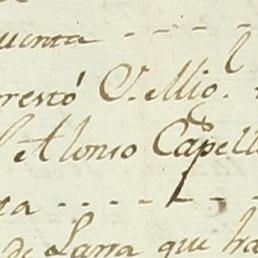 uenta
restó C. Mio.
Alonso Capell
ta
de Larra que ha